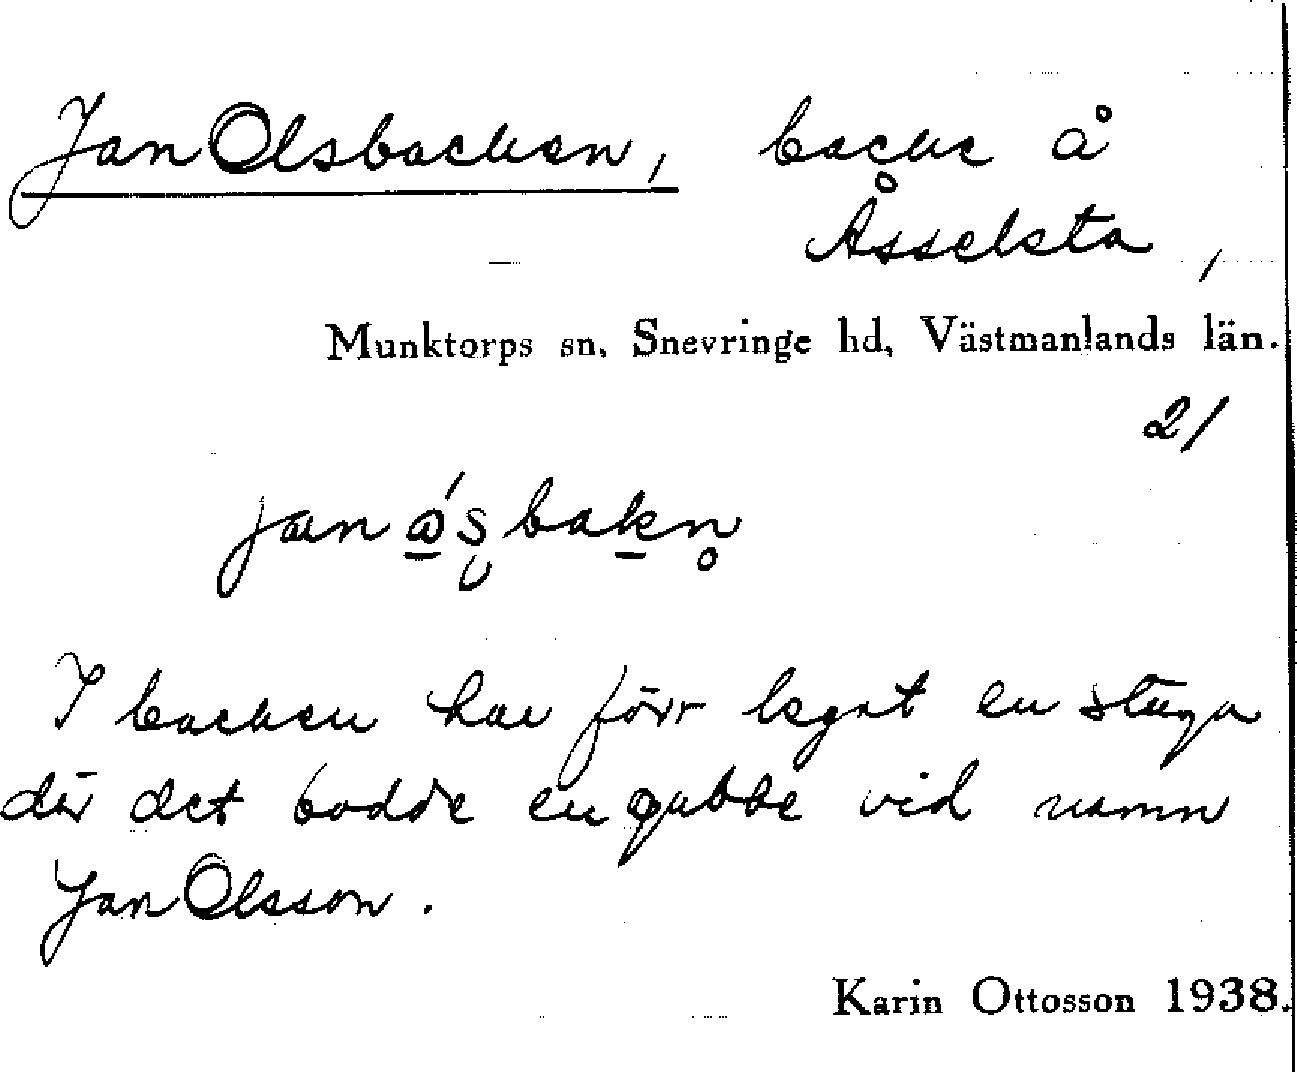 Jan Olsbacken, backe å
Åsselsta,
Munktorps sn, Snevringe hd, Västmanlands län.
21
I backen har förr legat en stuga
där det bodde en gubbe vid namn
Jan Olsson.
Karin Ottosson 1938.